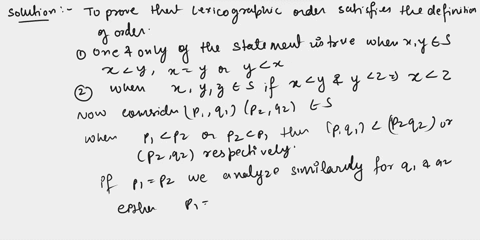 Solution :- To prove that lexicographic order satisfies the definition
of order.
① One & only of the statement is true when x,y ∈ S
x < y, x = y or y < x
② when x, y, z ∈ S if x < y & y < z => x < z
Now consider (p₁, q₁) (p₂, q₂) ∈ S
when p₁ < p₂ or p₂ < p₁ then (p₁q₁) < (p₂q₂) or
(p₂, q₂) respectively.
If p₁ = p₂ we analyze similarly for q₁ & q₂
either p₁ =